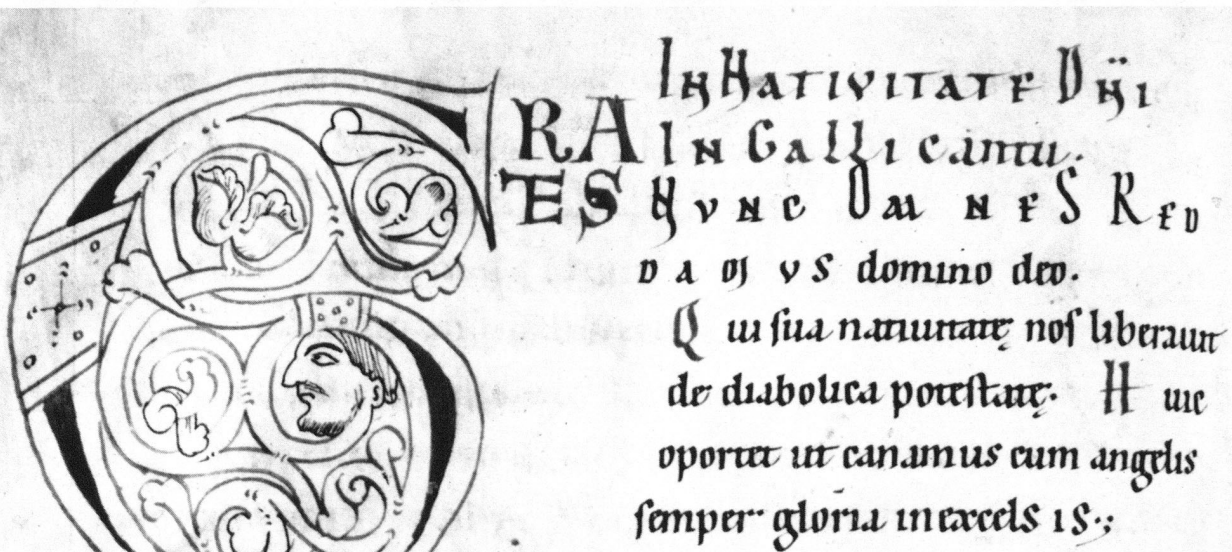 IN NATIVITATE DN̄I
IN GALLICANTU.
GRATES NUNC OMNES RED
DAMUS domino deo.
Qui sua natiuitatę nos liberauit
de diabolica potestatę. Huic
oportet ut canamus cum angelis
semper gloria in excelsis.;